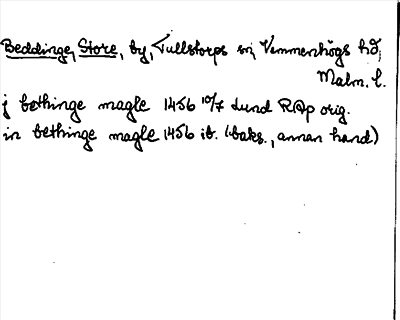 Beddinge, Store, by, Tullstorps sn, Vemmenhögs hd,
Malm. l.
j bethinge magle 1456 10/7 Lund RAp orig.
in bethinge magle 1456 ib. (baks., annan hand)